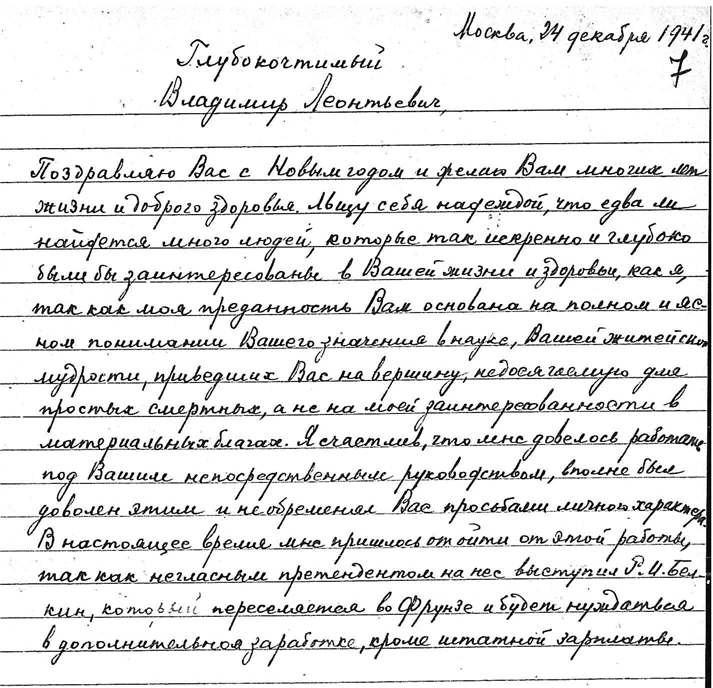 Москва, 24 декабря 1941 г.
7
Глубокочтимый
Владимир Леонтьевич,
Поздравляю Вас с Новым годом и желаю Вам многих лет
жизни и доброго здоровья. Льщу себя надеждой, что едва ли
найдется много людей, которые так искренно и глубоко
были бы заинтересованы в Вашей жизни и здоровьи, как я,
так как моя преданность Вам основана на полном и яс-
ном понимании Вашего значения в науке, Вашей житейской
мудрости, приведших Вас на вершину, недосягаемую для
простых смертных, а не на моей заинтересованности в
материальных благах. Я счастлив, что мне довелось работать
под Вашим непосредственным руководством, вполне был
доволен этим и не обременял Вас просьбами личного характера.
В настоящее время мне пришлось отойти от этой работы,
так как негласным претендентом на нее выступил Р.И. Бел-
кин, который переселяется во Фрунзе и будет нуждаться
в дополнительном заработке, кроме штатной зарплаты.